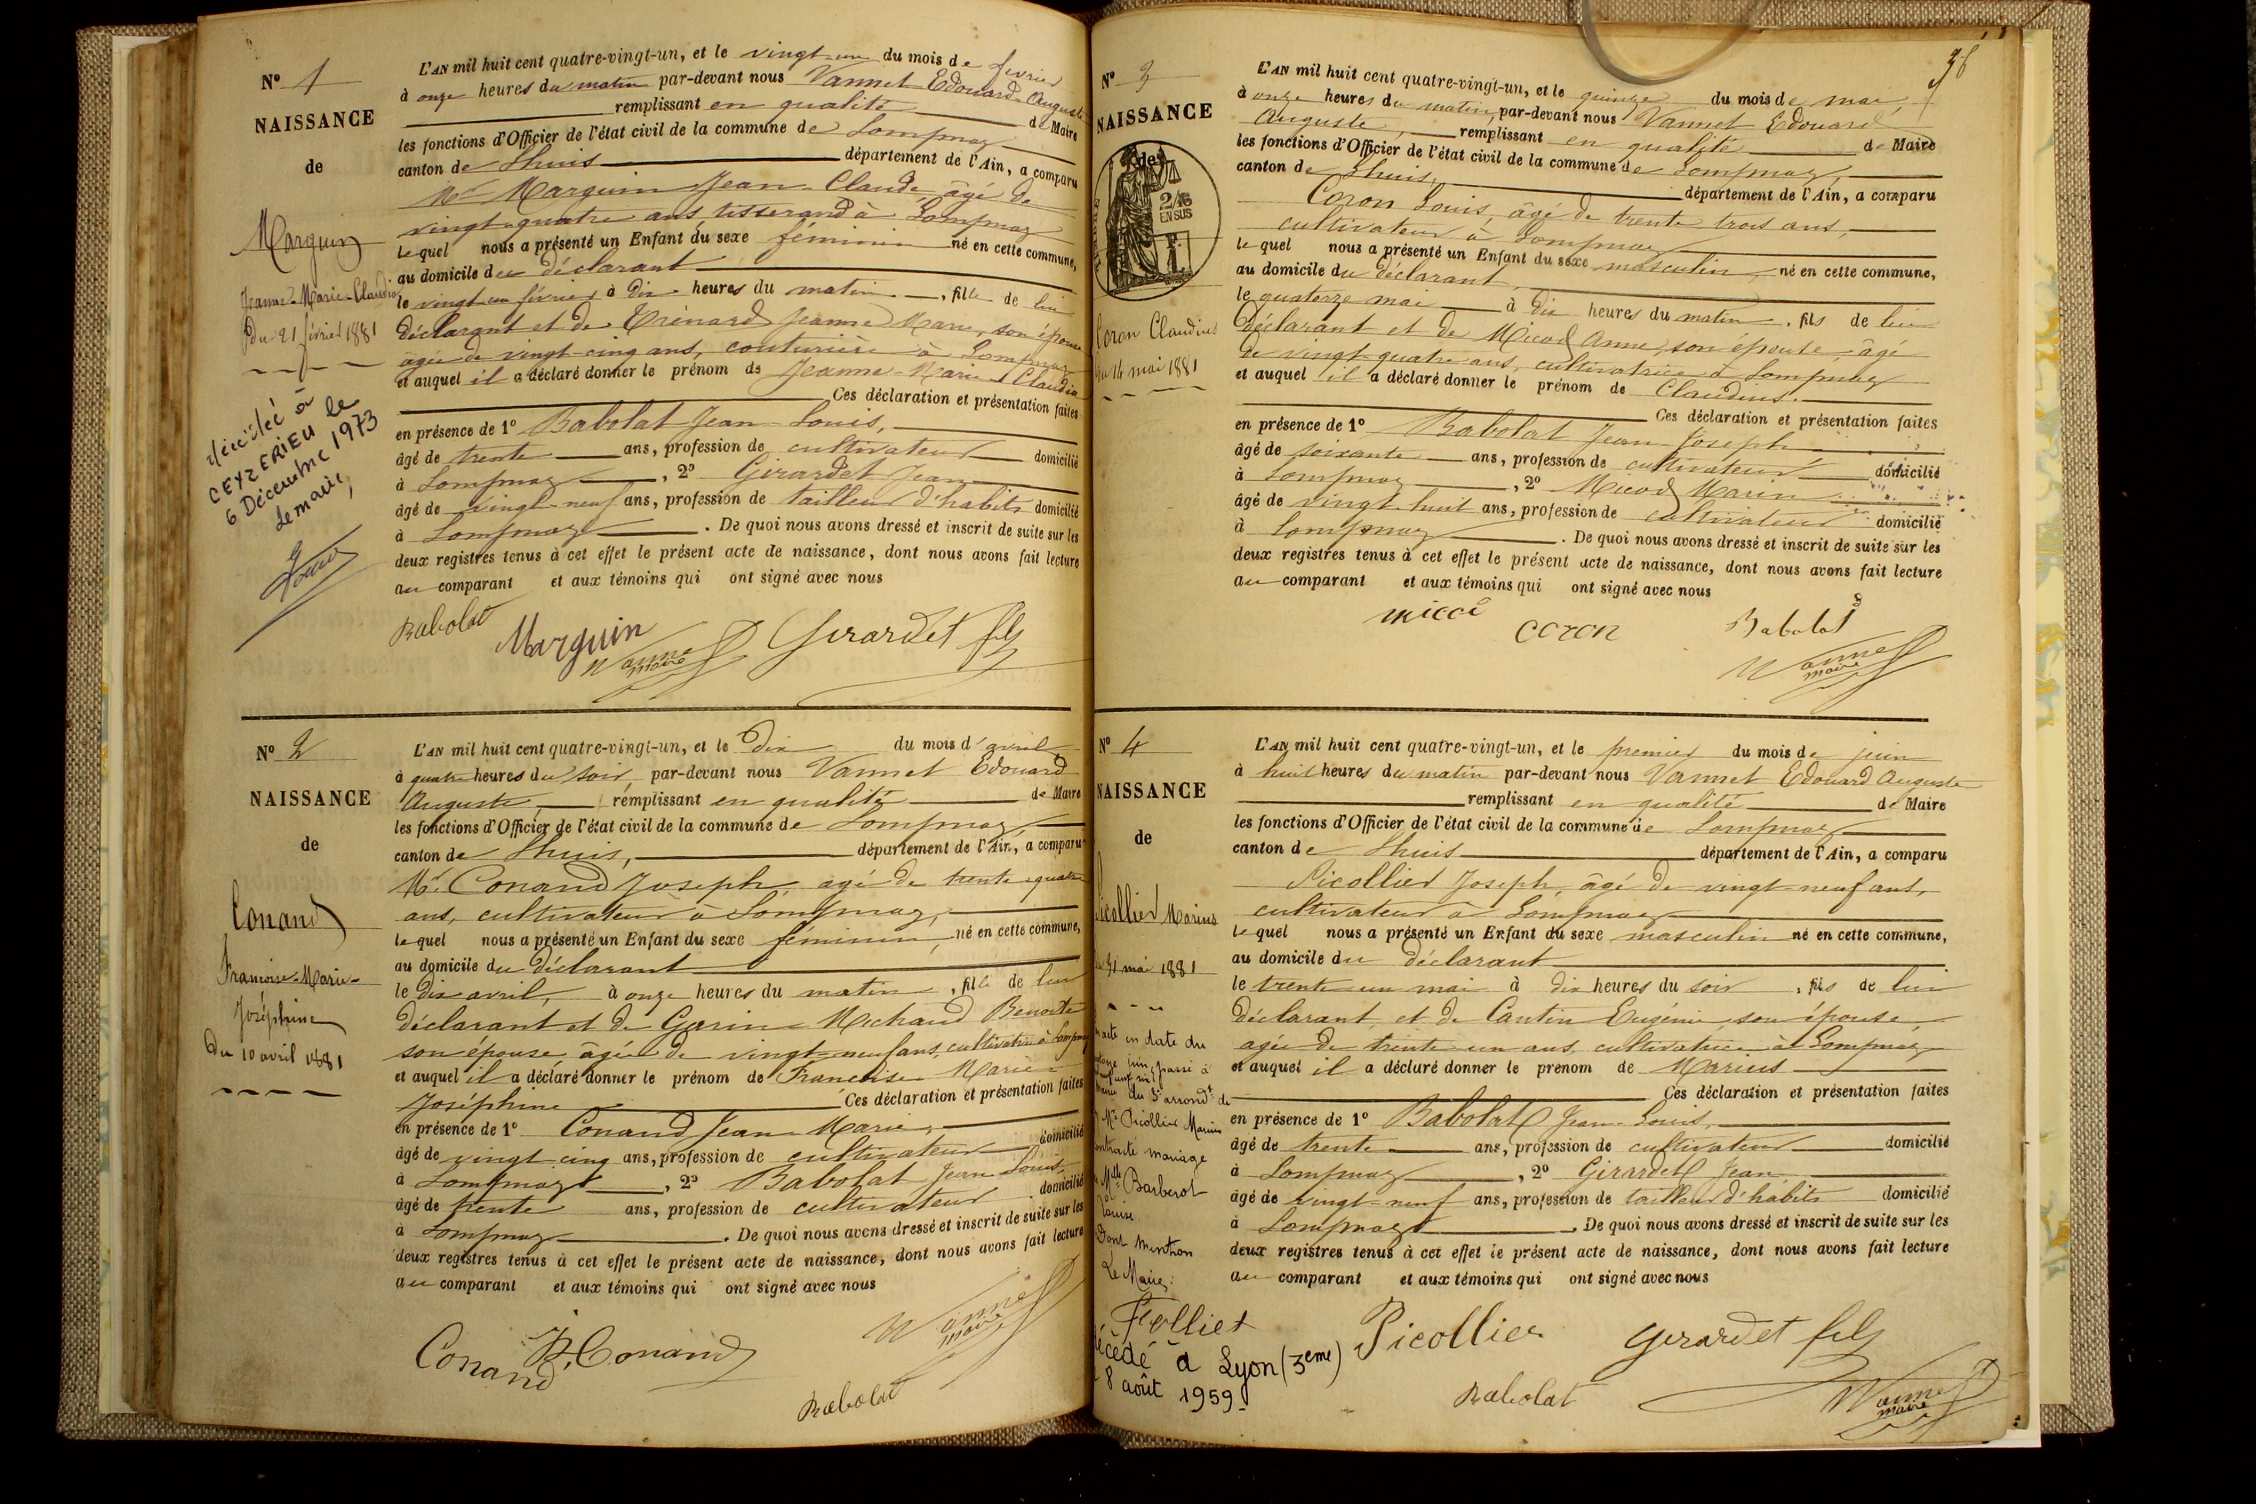 N° 1
NAISSANCE
de
Marguin
Jeanne-Marie-Claudia
Du 21 février 1881
décédée à
CEYZERIEU le
6 Décembre 1973
Le maire,
L'AN mil huit cent quatre-vingt-un, et le vingt-un du mois de février
à onze heures du matin par-devant nous Vannet Edouard-Auguste
remplissant en qualité de Maire
les fonctions d'Officier de l'état civil de la commune de Lompnaz
canton de Lhuis département de l'Ain, a comparu
Mr Marguin Jean-Claude, âgé de
vingt-quatre ans, tisserand à Lompnaz
lequel nous a présenté un Enfant du sexe féminin né en cette commune,
au domicile du déclarant
le vingt-un février à dix heures du matin, fille de lui
déclarant et de Trénard Jeanne Marie, son épouse
âgée de vingt-cinq ans, couturière à Lompnaz
et auquel il a déclaré donner le prénom de Jeanne-Marie-Claudia
Ces déclaration et présentation faites
en présence de 1° Babolat Jean-Louis,
âgé de trente ans, profession de cultivateur domicilié
à Lompnaz, 2° Girardet Jean
âgé de vingt-neuf ans, profession de tailleur d'habits domicilié
à Lompnaz. De quoi nous avons dressé et inscrit de suite sur les
deux registres tenus à cet effet le présent acte de naissance, dont nous avons fait lecture
au comparant et aux témoins qui ont signé avec nous
Babolat Marguin Girardet fils
Vannet
maire
N° 2
NAISSANCE
de
Conand
Françoise-Marie-
Joséphine
Du 10 avril 1881
L'AN mil huit cent quatre-vingt-un, et le dix du mois d'avril
à quatre heures du soir par-devant nous Vannet Edouard
Auguste, remplissant en qualité de Maire
les fonctions d'Officier de l'état civil de la commune de Lompnaz
canton de Lhuis, département de l'Ain, a comparu
Mr. Conand Joseph, âgé de trente-quatre
ans, cultivateur à Lompnaz,
lequel nous a présenté un Enfant du sexe féminin, né en cette commune,
au domicile du déclarant
le dix avril, à onze heures du matin, fille de lui
déclarant et de Garin-Michaud Benoite
son épouse âgée de vingt-neuf ans, cultivatrice à Lompnaz
et auquel il a déclaré donner le prénom de Françoise Marie
Joséphine Ces déclaration et présentation faites
en présence de 1° Conand Jean-Marie,
âgé de vingt cinq ans, profession de cultivateur domicilié
à Lompnaz, 2° Babolat Jean Louis
âgé de trente ans, profession de cultivateur domicilié
à Lompnaz. De quoi nous avons dressé et inscrit de suite sur les
deux registres tenus à cet effet le présent acte de naissance, dont nous avons fait lecture
au comparant et aux témoins qui ont signé avec nous
Vannet
maire
Conand Conand
Babolat
N° 3
NAISSANCE
de
2/10
EN SUS
Coron Claudius
du 14 mai 1881
L'AN mil huit cent quatre-vingt-un, et le quinze du mois de mai,
à onze heures du matin, par-devant nous Vannet Edouard
Auguste, remplissant en qualité de Maire
les fonctions d'Officier de l'état civil de la commune de Lompnaz,
canton de Lhuis, département de l'Ain, a comparu
Coron Louis, âgé de trente-trois ans,
cultivateur à Lompnaz
lequel nous a présenté un Enfant du sexe masculin, né en cette commune,
au domicile du déclarant,
le quatorze mai à dix heures du matin, fils de lui
déclarant et de Micod Anne, son épouse, âgé
de vingt-quatre ans, cultivatrice à Lompnaz
et auquel il a déclaré donner le prénom de Claudius.
Ces déclaration et présentation faites
en présence de 1° Babolat Jean Joseph
âgé de soixante ans, profession de cultivateur domicilié
à Lompnaz, 2° Micod Marin
âgé de vingt-huit ans, profession de cultivateur domicilié
à Lompnaz. De quoi nous avons dressé et inscrit de suite sur les
deux registres tenus à cet effet le présent acte de naissance, dont nous avons fait lecture
au comparant et aux témoins qui ont signé avec nous
micod coron Babolat
Vannet
maire
N° 4
NAISSANCE
de
Picollier Marius
du 31 mai 1881
acte en date du
passé à
du 3e arrondt de
Mr Picollier Marius
contracté mariage
Mlle Barberot
Louise
Dont mention
Le Maire:
Folliet
décédé à Lyon (3eme)
8 août 1959
L'AN mil huit cent quatre-vingt-un, et le premier du mois de juin
à huit heures du matin par-devant nous Vannet Edouard Auguste
remplissant en qualité de Maire
les fonctions d'Officier de l'état civil de la commune de Lompnaz
canton de Lhuis département de l'Ain, a comparu
Picollier Joseph, âgé de vingt-neuf ans,
cultivateur à Lompnaz
lequel nous a présenté un Enfant du sexe masculin né en cette commune,
au domicile du déclarant
le trente-un mai à dix heures du soir, fils de lui
déclarant, et de Cantin Eugénie son épouse
âgée de trente-un ans, cultivatrice à Lompnaz
et auquel il a déclaré donner le prénom de Marius
Ces déclaration et présentation faites
en présence de 1° Babolat Jean-Louis,
âgé de trente ans, profession de cultivateur domicilié
à Lompnaz, 2° Girardet Jean
âgé de vingt-neuf ans, profession de tailleur d'habits domicilié
à Lompnaz. De quoi nous avons dressé et inscrit de suite sur les
deux registres tenus à cet effet le présent acte de naissance, dont nous avons fait lecture
au comparant et aux témoins qui ont signé avec nous
Picollier Girardet fils
Babolat Vannet
maire